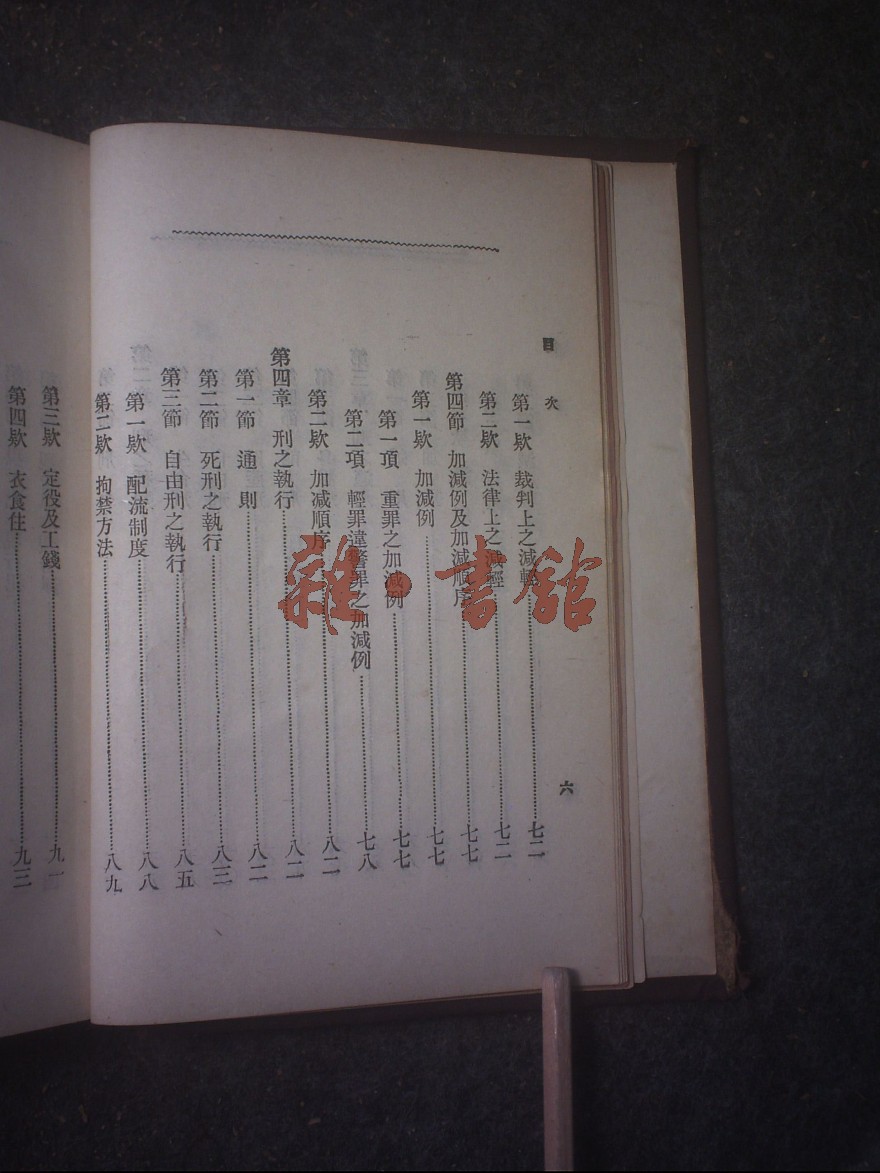 目次 六
第一欵 裁判上之減輕……七二
第二欵 法律上之減輕……七二
第四節 加減例及加減順序……七七
第一欵 加減例……七七
第一項 重罪之加減例……七七
第二項 輕罪違警罪之加減例……七八
第二欵 加減順序……八二
第四章 刑之執行……八二
第一節 通則……八二
第二節 死刑之執行……八三
第三節 自由刑之執行……八五
第一欵 配流制度……八八
第二欵 拘禁方法……八九
第三欵 定役及工錢……九一
第四欵 衣食住……九三
雜·書館